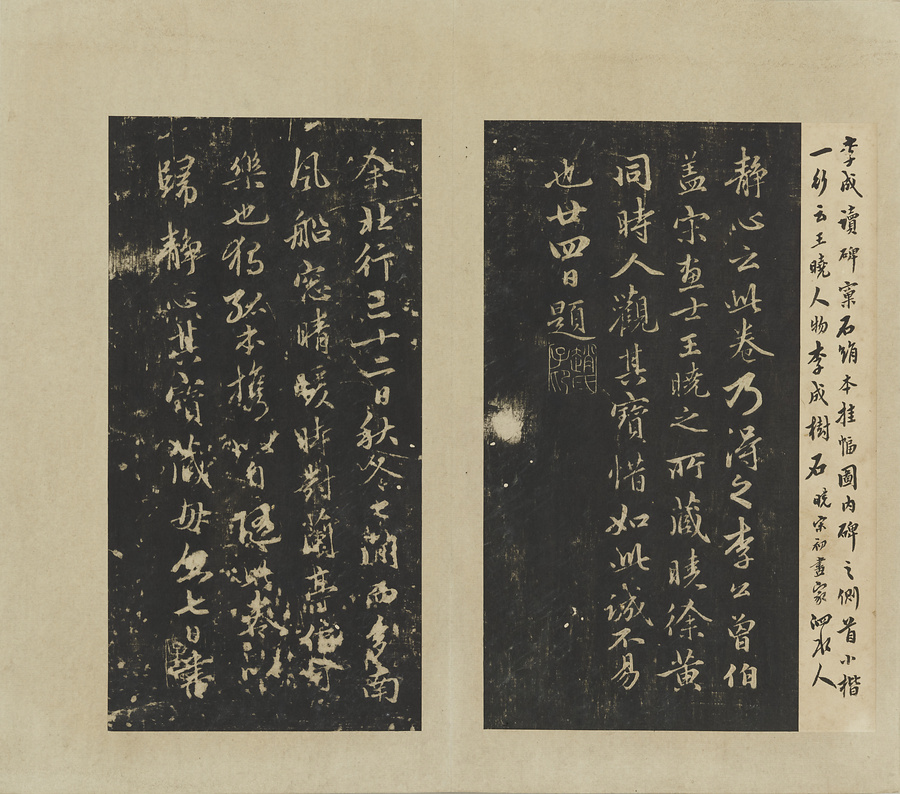 李成讀碑窠石絹本挂幅圖内碑之側首小楷
一行云王曉人物李成樹石曉宋初畫家泗水人
靜心云此卷乃得之李公曾伯
盖宋畫士王曉之所藏曉徐黄
同時人觀其寶惜如此誠不易
也廿四日題
趙氏子印
余北行三十二日秋冬之間而多南
風船窓晴暖時對蘭亭
樂也獨孤本攜以自隨此卷以
歸靜心其寶藏毋忽七日書